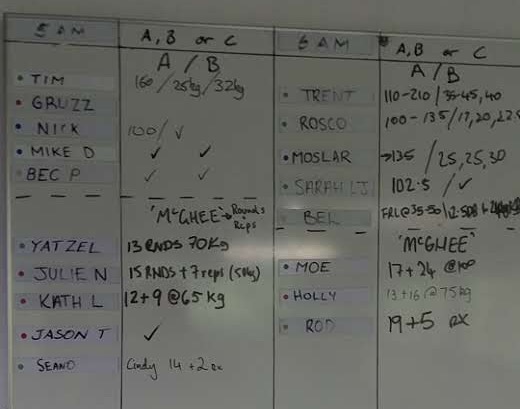 5 AM A, B or C 6 AM A, B or C
A / B A / B
TIM 160/25kg/32kg
GRUZZ
NICK 100/✓
MIKE D ✓ ✓
BEC P ✓ ✓
"McGHEE" → Rounds Reps
YATZEL 13 RNDS 70kg
JULIE N 15 RNDS + 7 reps (50kg)
KATH L 12+9 @65 kg
JASON T ✓
SEANO Cindy 14+2 rx
TRENT 110-210/35-45,40
ROSCO 100-135/17,20,22.
MOSLAR →135/25,25,30
SARAH LJ 102.5/✓
BEL
"McGHEE"
MOE 17+24 @100
HOLLY 13+16 @75kg
ROD 19+5 RX